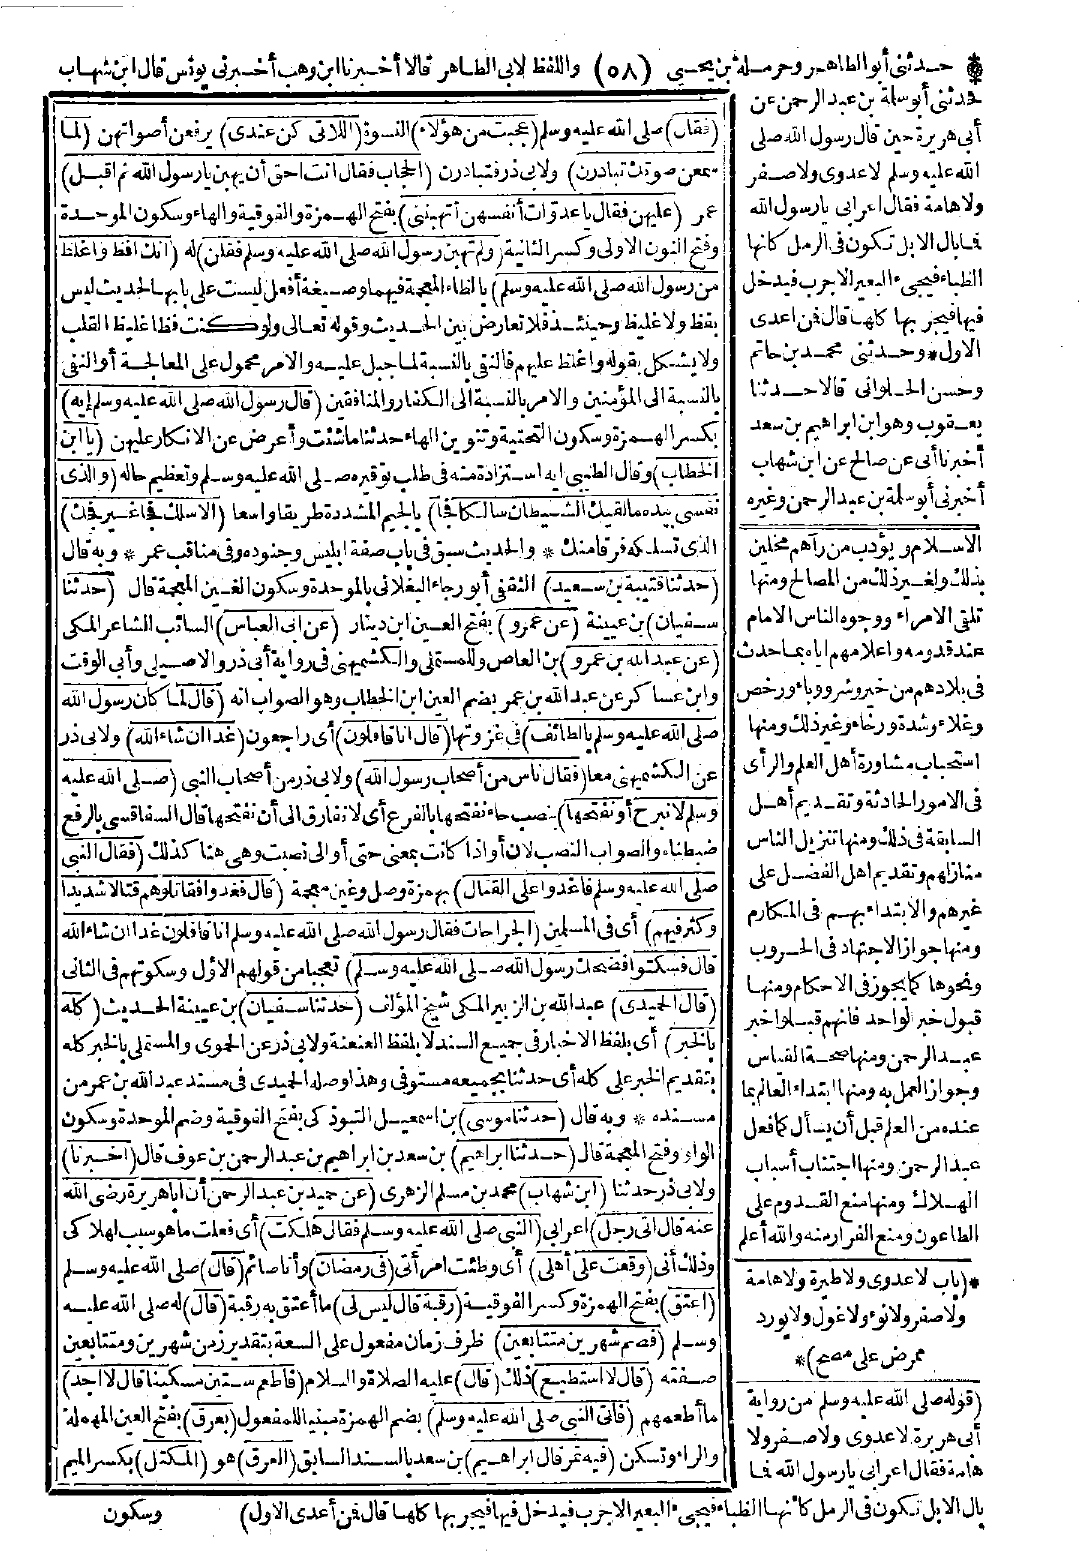 * حدثنى أبو الطاهر وحرملة بن يحيى (٥٨) واللفظ لابى الطاهر قالا أخبرنا ابن وهب أخبرنى يونس قال ابن شهاب
حدثنى أبو سلمة بن عبد الرحمن عن
أبى هريرة حين قال رسول الله صلى
الله عليه وسلم لا عدوى ولا صفر
ولا هامة فقال اعرابى يا رسول الله
فما بال الابل تكون فى الرمل كأنها
الظباء فيجىء البعير الاجرب فيدخل
فيها فيجربها كلها قال فمن اعدى
الاول * وحدثنى محمد بن حاتم
وحسن الحلوانى قالا حدثنا
يعقوب وهو ابن ابراهيم بن سعد
أخبرنا أبى عن صالح عن ابن شهاب
أخبرنى أبو سلمة بن عبد الرحمن وغيره
الاسلام ويؤدب من رآهم مخلين
بذلك ولغير ذلك من المصالح ومنها
تلقى الامراء ووجوه الناس الامام
عند قدومه واعلامهم اياه بما حدث
فى بلادهم من خير وشر ووباء ورخص
وغلاء وشدة ورخاء وغير ذلك ومنها
استحباب مشاورة أهل العلم والرأى
فى الامور الحادثة وتقديم أهل
السابقة فى ذلك ومنها تنزيل الناس
منازلهم وتقديم اهل الفضل على
غيرهم والابتداء بهم فى المكارم
ومنها جواز الاجتهاد فى الحروب
ونحوها كما يجوز فى الاحكام ومنها
قبول خبر الواحد فانهم قبلوا خبر
عبد الرحمن ومنها صحة القياس
وجواز العمل به ومنها ابتداء العالم بما
عنده من العلم قبل أن يسأل كما فعل
عبد الرحمن ومنها اجتناب أسباب
الهلاك ومنها منع القدوم على
الطاعون ومنع الفرار منه والله أعلم
*(باب لا عدوى ولا طيرة ولا هامة
ولا صفر ولا نوء ولا غول ولا يورد
ممرض على مصح)*
(قوله صلى الله عليه وسلم من رواية
أبى هريرة لا عدوى ولا صفر ولا
هامة فقال اعرابى يا رسول الله فما
بال الابل تكون فى الرمل كأنها الظباء فيجىء البعير الاجرب فيدخل فيها فيجربها كلها قال فمن أعدى الاول)
(فقال) صلى الله عليه وسلم (عجبت من هؤلاء) النسوة (اللاتى كن عندى) يرفعن أصواتهن (لما
سمعن صوتك تبادرن) ولابى ذر فتبادرن (الحجاب فقال أنت احق أن يهبن يا رسول الله ثم اقبل)
عمر (عليهن فقال يا عدوات أنفسهن أتهبننى) بفتح الهمزة والفوقية والهاء وسكون الموحدة
وفتح النون الاولى وكسر الثانية (ولم تهبن رسول الله صلى الله عليه وسلم فقلن) له (انك افظ واغلظ
من رسول الله صلى الله عليه وسلم) بالظاء المعجمة فيهما وصيغة أفعل ليست على بابها لحديث ليس
بفظ ولا غليظ وحينئذ فلا تعارض بين الحديث وقوله تعالى ولو كنت فظا غليظ القلب
ولا يشكل بقوله واغلظ عليهم فالنفى بالنسبة لما جبل عليه والامر محمول على المعالجة أو النفى
بالنسبة الى المؤمنين والامر بالنسبة الى الكفار والمنافقين (قال رسول الله صلى الله عليه وسلم إيه)
بكسر الهمزة وسكون التحتية وتنوين الهاء حدثنا ما شئت وأعرض عن الانكار عليهن (يا ابن
الخطاب) وقال الطيبى ايه استزادة منه فى طلب توقيره صلى الله عليه وسلم وتعظيم حاله (والذى
نفسى بيده ما لقيك الشيطان سالكا فجا) بالجيم المشددة طريقا واسعا (الا سلك فجا غير فجك)
الذى تسلكه فرقا منك * والحديث سبق فى باب صفة ابليس وجنوده وفى مناقب عمر * وبه قال
(حدثنا قتيبة بن سعيد) الثقفى أبو رجاء البغلانى بالموحدة وسكون الغين المعجمة قال (حدثنا
سفيان) بن عيينة (عن عمرو) بفتح العين ابن دينار (عن ابى العباس) السائب الشاعر المكى
(عن عبد الله بن عمرو) بن العاص وللمستملى والكشميهنى فى رواية أبى ذر والاصيلى وأبى الوقت
وابن عساكر عن عبد الله بن عمر بضم العين ابن الخطاب وهو الصواب انه (قال لما كان رسول الله
صلى الله عليه وسلم بالطائف) فى غزوتها (قال انا قافلون) أى راجعون (غدا ان شاء الله) ولابى ذر
عن الكشميهنى معا (فقال ناس من أصحاب رسول الله) ولابى ذر من أصحاب النبى (صلى الله عليه
وسلم لا نبرح أو نفتحها) بنصب حاء نفتحها بالفرع أى لا نفارق الى أن نفتحها قال السفاقسى بالرفع
ضبطناه والصواب النصب لان أو اذا كانت بمعنى حتى أو الى نصبت وهى هنا كذلك (فقال النبى
صلى الله عليه وسلم فاغدوا على القتال) بهمزة وصل وغين معجمة (قال فغدوا فقاتلوهم قتالا شديدا
وكثر فيهم) أى فى المسلمين (الجراحات فقال رسول الله صلى الله عليه وسلم انا قافلون غدا ان شاء الله
قال فسكتوا فضحك رسول الله صلى الله عليه وسلم) تعجبا من قولهم الاول وسكوتهم فى الثانى
(قال الحميدى) عبد الله بن الزبير المكى شيخ المؤلف (حدثنا سفيان) بن عيينة الحديث (كله
بالخبر) أى بلفظ الاخبار فى جميع السند لا بلفظ العنعنة ولابى ذر عن الحموى والمستملى بالخبر كله
بتقديم الخبر على كله أى حدثنا بجميعه مستوفى وهذا وصله الحميدى فى مسند عبد الله بن عمر من
مسنده * وبه قال (حدثنا موسى) بن اسمعيل التبوذكى بفتح الفوقية وضم الموحدة وسكون
الواو وفتح المعجمة قال (حدثنا ابراهيم) بن سعد بن ابراهيم بن عبد الرحمن بن عوف قال (اخبرنا)
ولابى ذر حدثنا (ابن شهاب) محمد بن مسلم الزهرى (عن حميد بن عبد الرحمن أن أبا هريرة رضى الله
عنه قال اتى رجل) اعرابى (النبى صلى الله عليه وسلم فقال هلكت) أى فعلت ما هو سبب لهلاكى
وذلك أنى (وقعت على أهلى) أى وطئت امرأتى (فى رمضان) وأنا صائم (قال) صلى الله عليه وسلم
(اعتق) بفتح الهمزة وكسر الفوقية (رقبة قال ليس لى) ما أعتق به رقبة (قال) له صلى الله عليه
وسلم (فصم شهرين متتابعين) ظرف زمان مفعول على السعة بتقدير زمن شهرين ومتتابعين
صفته (قال لا استطيع) ذلك (قال) عليه الصلاة والسلام (فاطعم ستين مسكينا قال لا اجد)
ما أطعمهم (فأتى النبى صلى الله عليه وسلم) بضم الهمزة مبنيا للمفعول (بعرق) بفتح العين المهملة
والراء وتسكن (فيه تمر قال ابراهيم) بن سعد بالسند السابق (العرق) هو (المكتل) بكسر الميم
وسكون